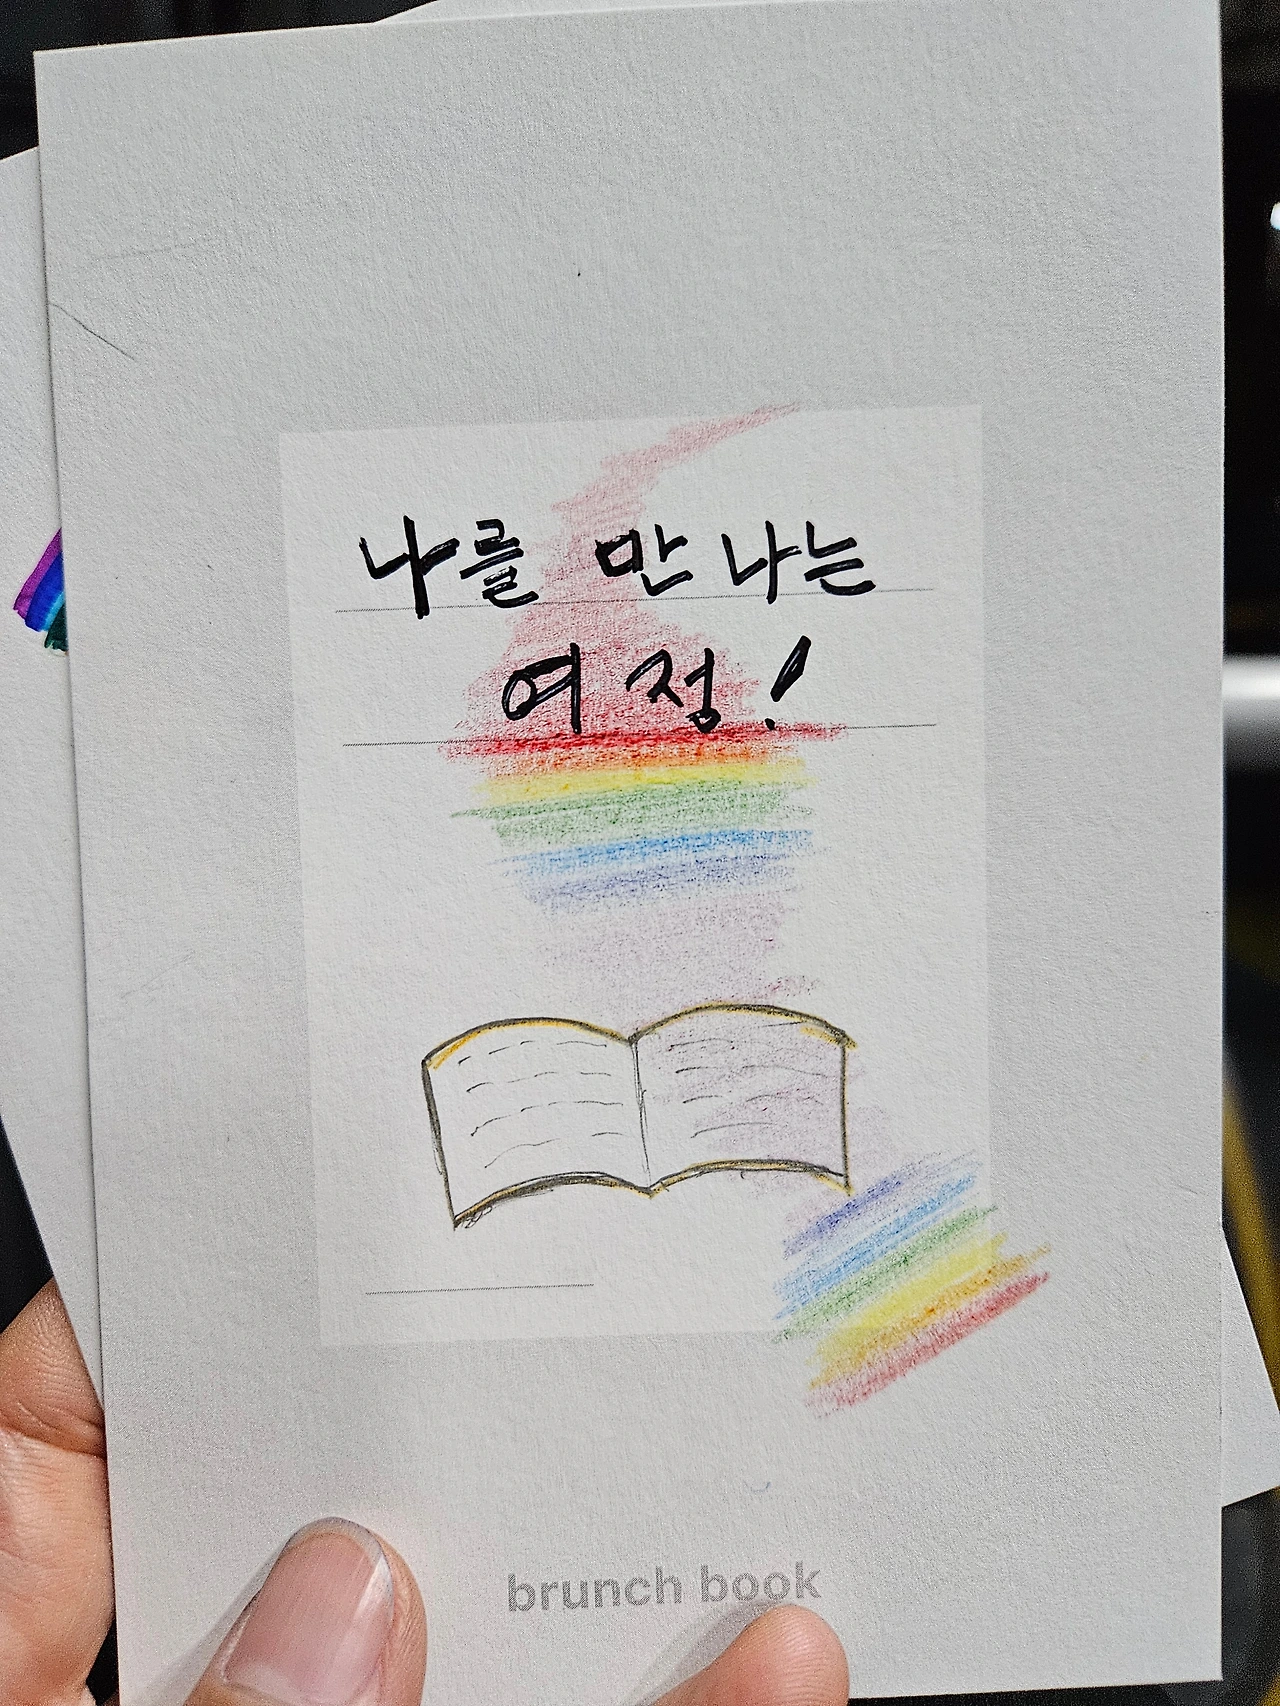 나를 만나는
여정!
brunch book